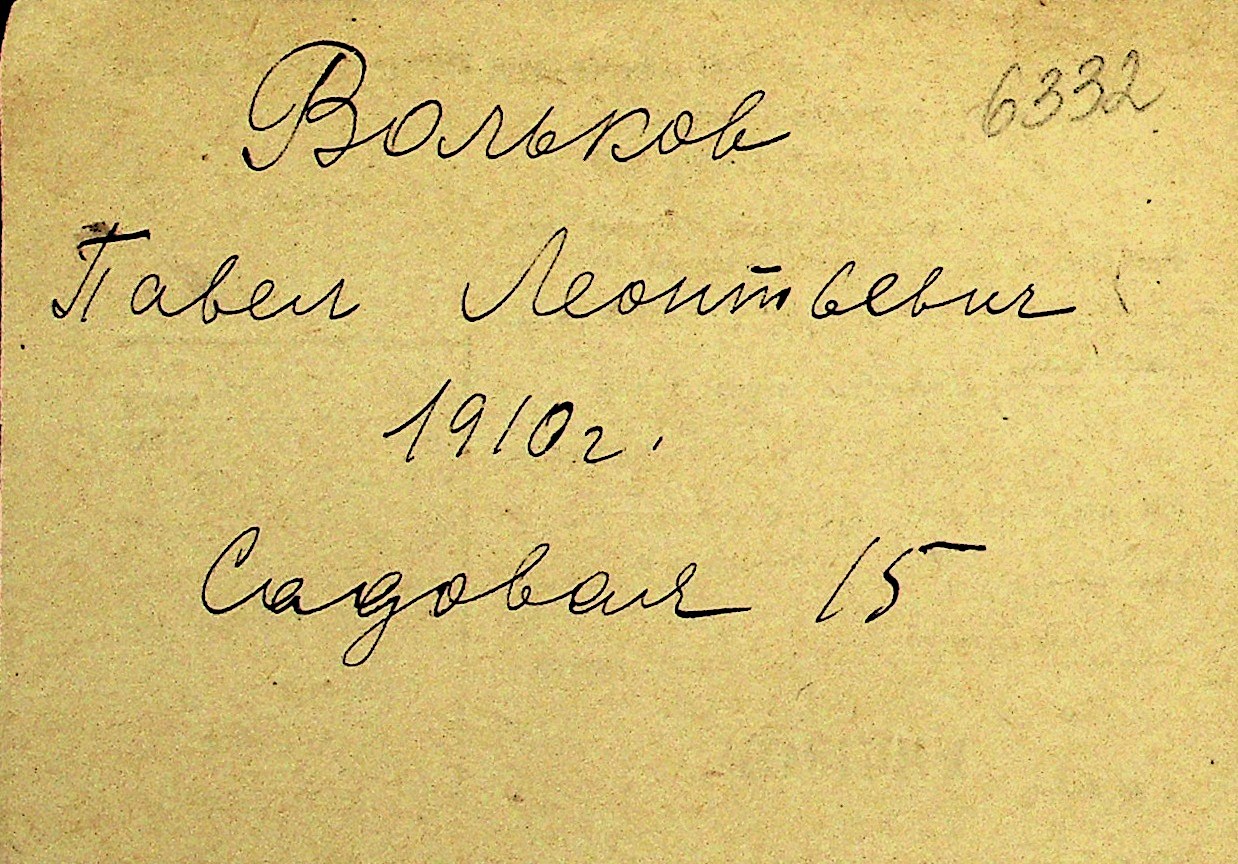 Вольков 6332
Павел Леонтьевич
1910г.
Садовая 15